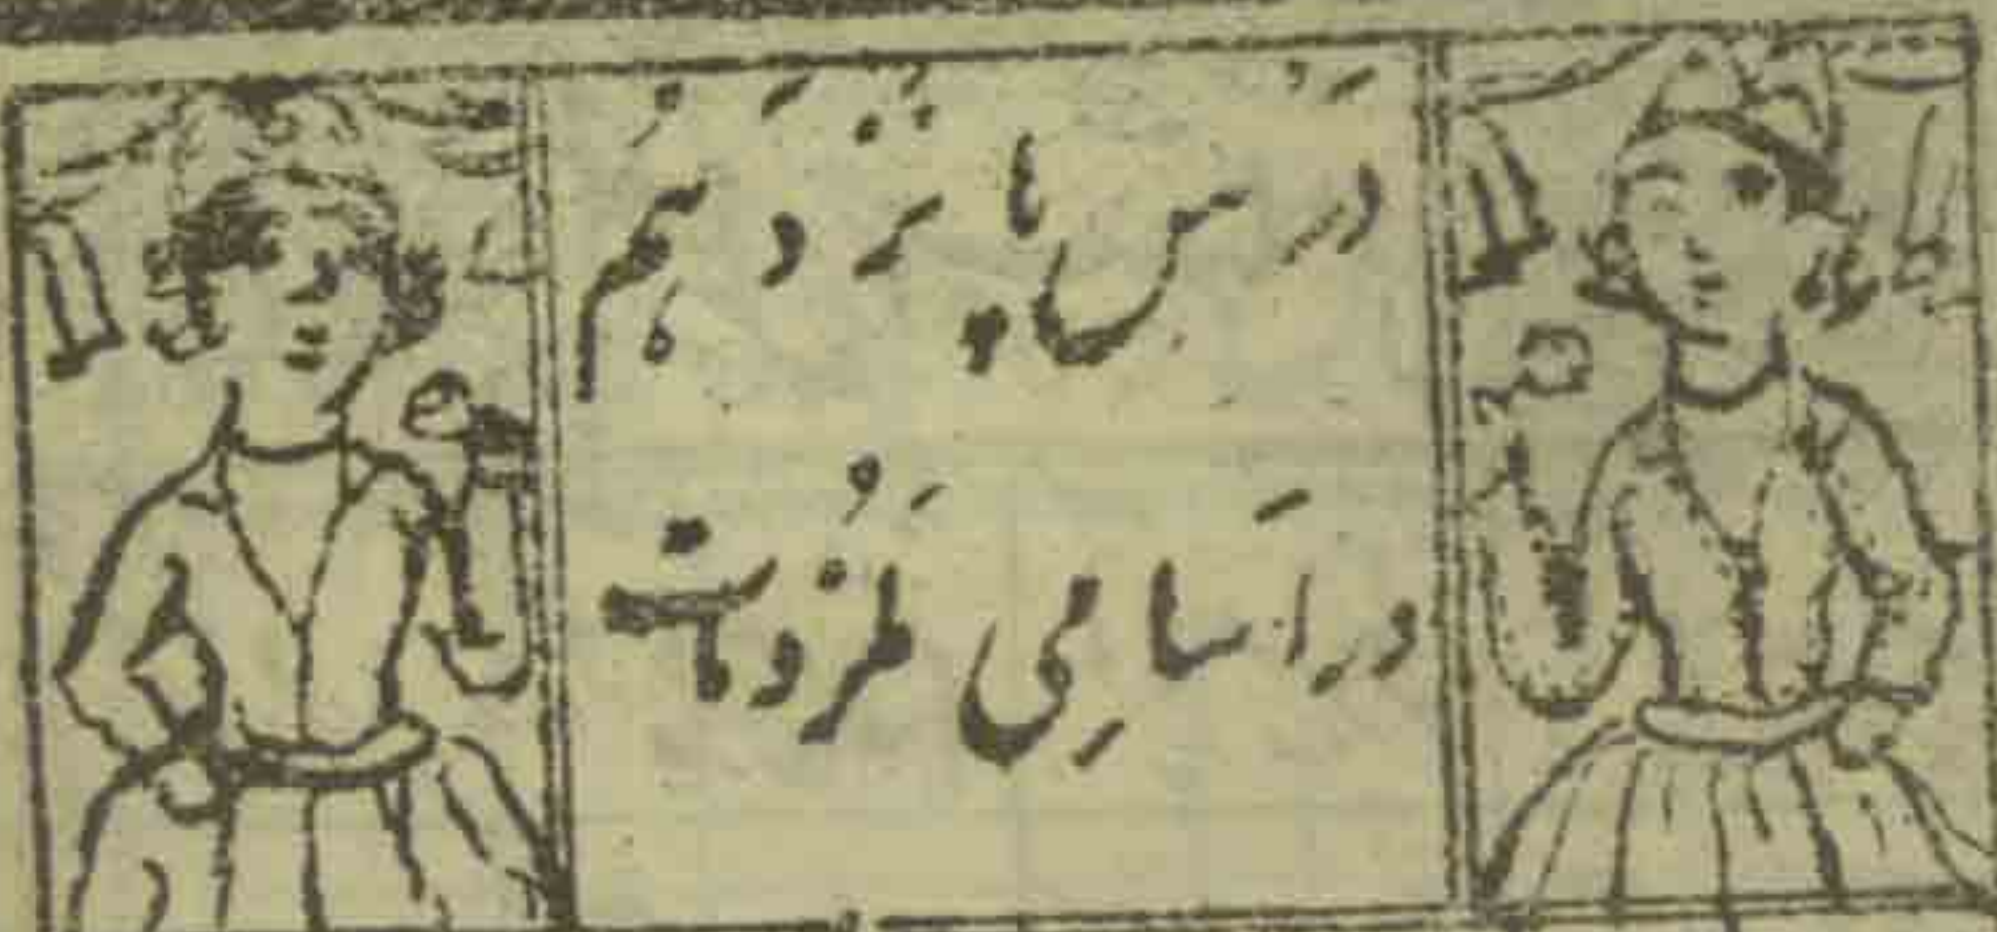 دَرسِ پانزدَهُم
در اَسامِی ظُرُوفات